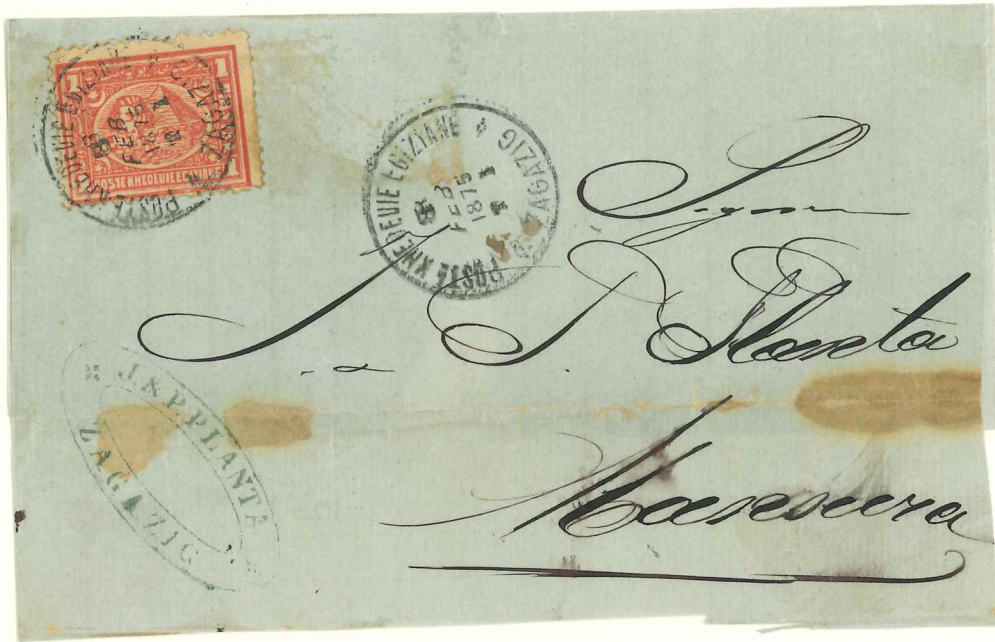 1 1
POSTE KHEDEUIE EGIZIANE
POSTE KHEDEUIE EGIZIANE
ZAGAZIG
8
FEB
1875
T 1
POSTE KHEDEUIE EGIZIANE
ZAGAZIG
8
FEB
1875
T 1
Sigri
J. & P. Planta
Mansura
J. & P. PLANTA
ZAGAZIG